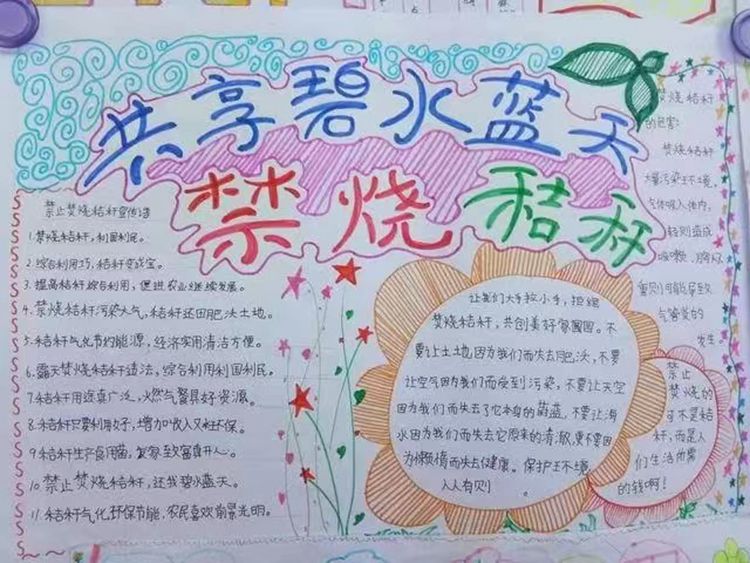 共享碧水蓝天
禁烧秸秆
禁止焚烧秸秆宣传语
1.焚烧秸秆,利国利民。
2.综合利用巧,秸秆变成宝。
3.提高秸秆综合利用,促进农业继续发展。
4.焚烧秸秆污染大气,秸秆还田肥沃土地。
5.秸秆气化节约能源,经济实用清洁方便。
6.露天焚烧秸秆违法,综合利用利国利民。
7.秸秆用途真广泛,火然气餐具好资源。
8.秸秆只要利用好,增加收入又环保。
9.秸秆生产食用菌,发家致富真开心。
10.禁止焚烧秸秆,还我碧水蓝天。
11.秸秆气化环保节能,农民喜欢前景光明。
让我们大手拉小手,拒绝
焚烧秸秆,共创美好氛围圆。不
要让土地因为我们而失去肥沃,不要
让空气因为我们而受到污染,不要让天空
因为我们而失去了它本身的蔚蓝,不要让海
水因为我们而失去它原来的清澈,更不要因
为懒惰而失去健康。保护环境
人人有则
焚烧秸秆
的危害:
焚烧秸秆
大量污染环境,
气体吸入体内,
轻则造成
咳嗽、胸闷
重则可能导致
气管炎的
发生
禁止
焚烧的
可不是秸
秆,而是人
们生活所需
的钱啊!